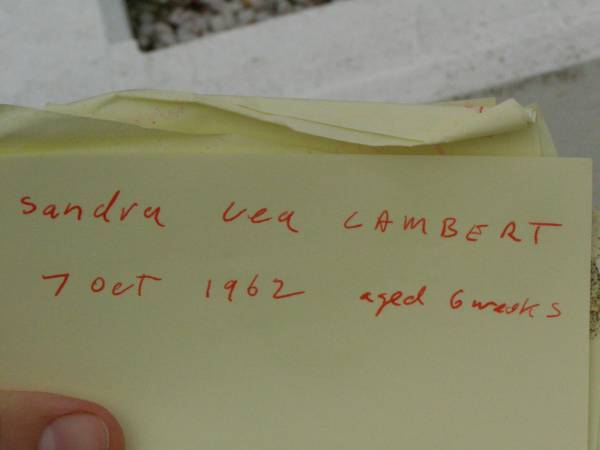 Sandra Vea LAMBERT
7 Oct 1962 aged 6 weeks